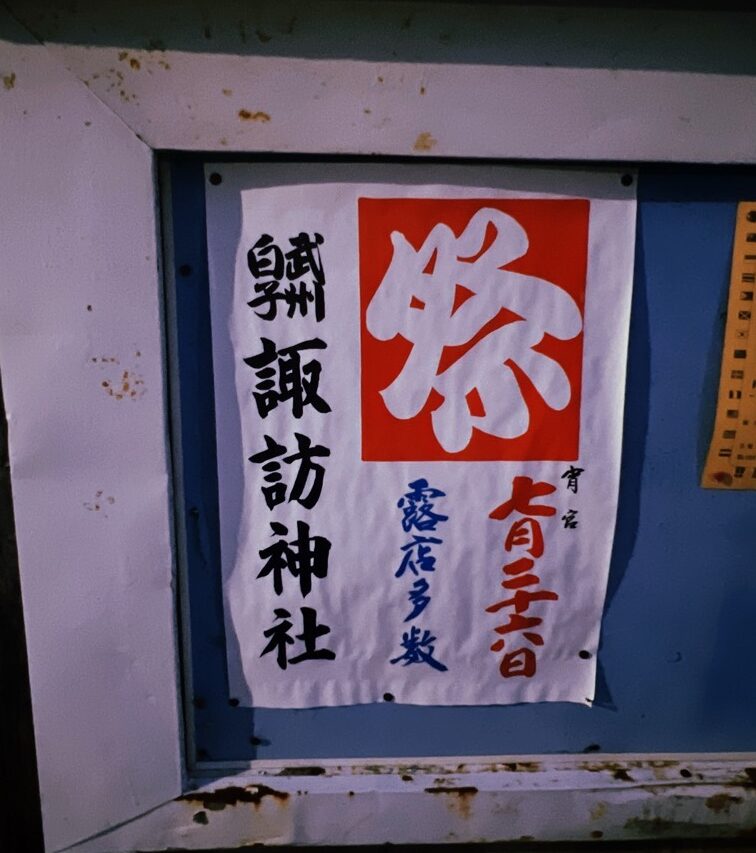 祭
宵宮
七月二十六日
露店多数
武州
白子
諏訪神社